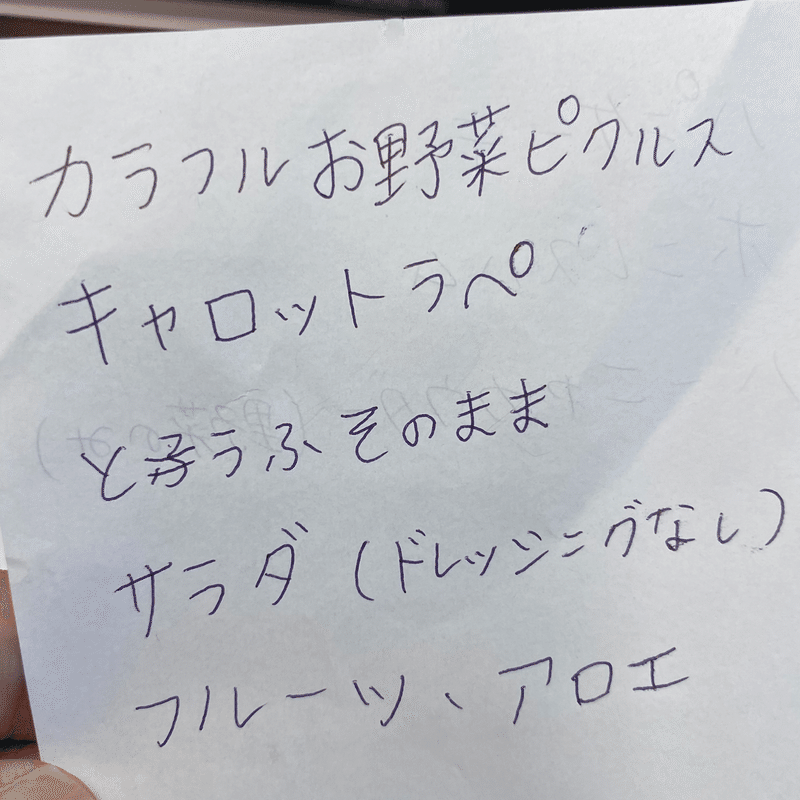 カラフルお野菜ピクルス
キャロットラペ
とうふそのまま
サラダ（ドレッシングなし）
フルーツ、アロエ